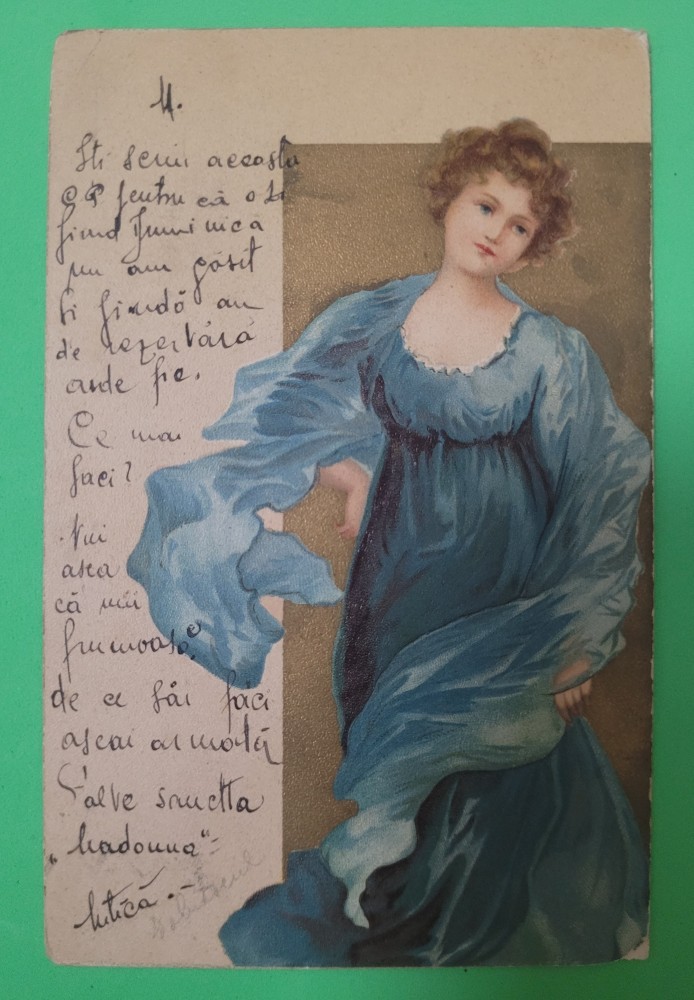 M.
Iti scriu aceasta
C P pentru că o zi
fiind Duminică
nu am găsit
Si fiindcă am
de
unde fie.
Ce mai
faci?
Nui
asea
că mii
frumoasă,
de ce
aseai
Salve sanctta
„Madonna"
Mitică.